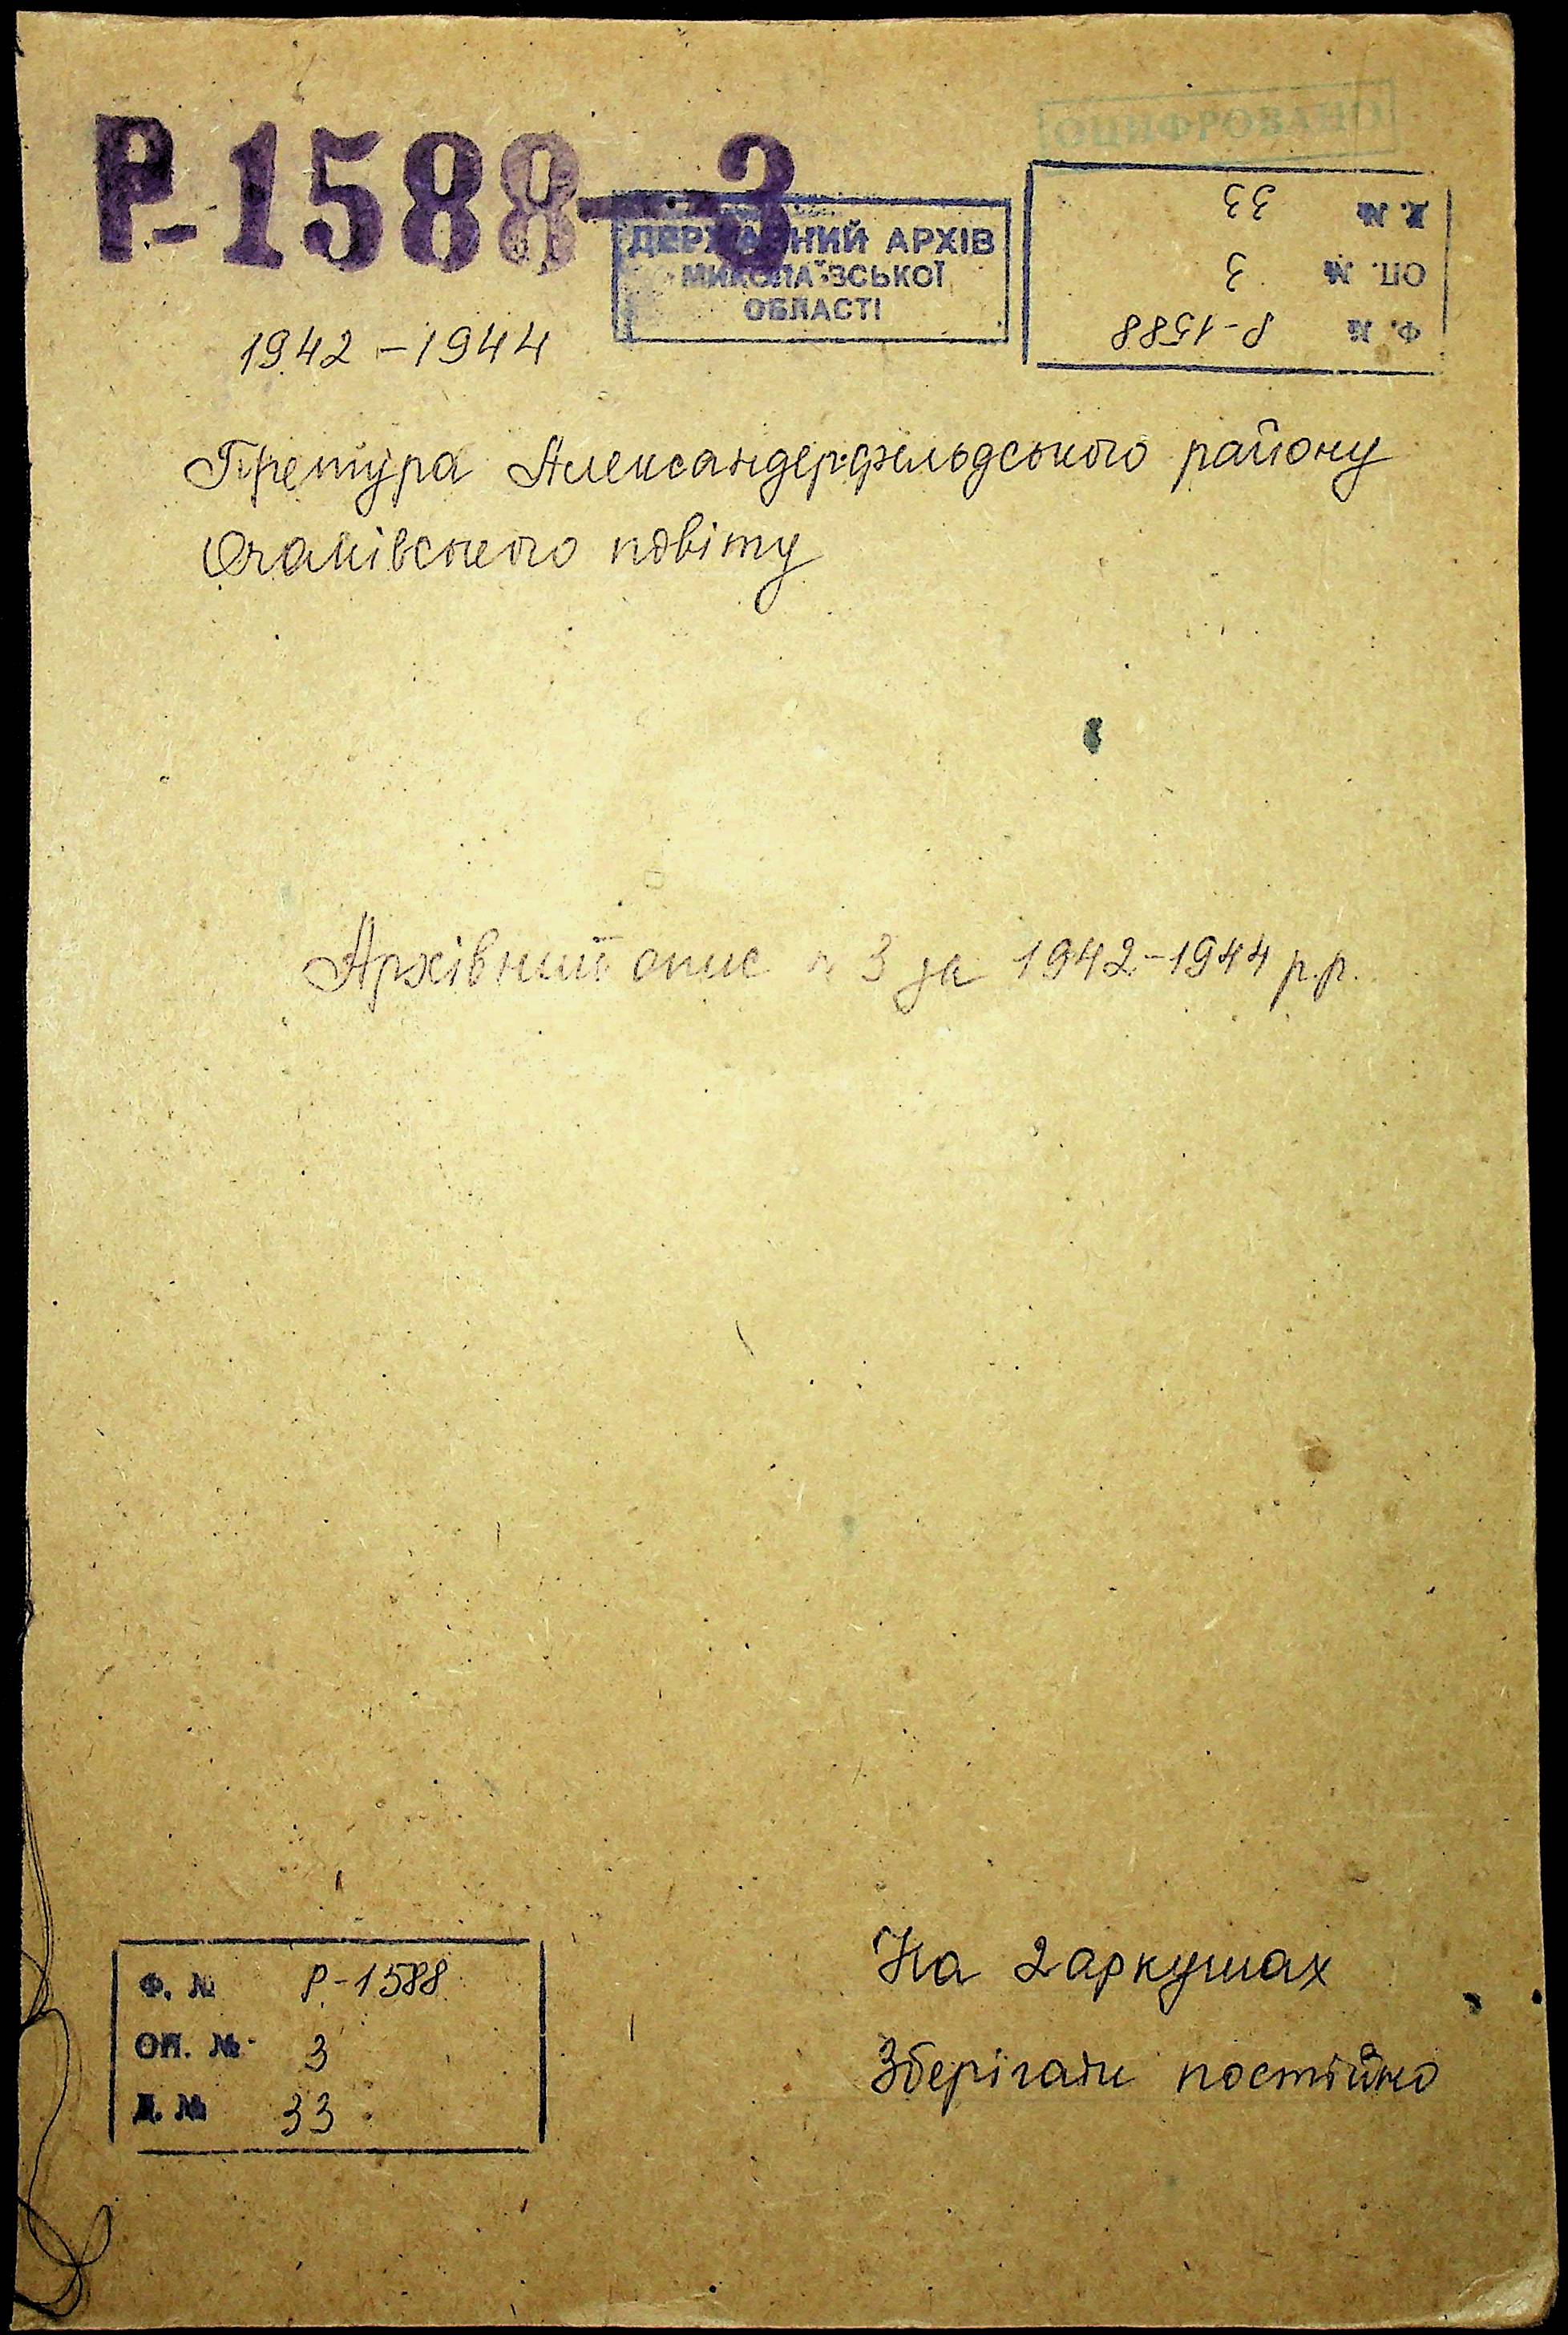 ОЦИФРОВАНО
Р-1588-3
ДЕРЖАВНИЙ АРХІВ
МИКОЛАЇВСЬКОЇ
ОБЛАСТІ
Ф. № Р-1588
ОП. № 3
Д. № 33
1942-1944
Претура Александерфельдського району
Очаківського повіту
Архівний опис № 3 за 1942-1944 р.р.
Ф. № Р-1588
ОП. № 3
Д. № 33
На 2 аркушах
Зберігати постійно